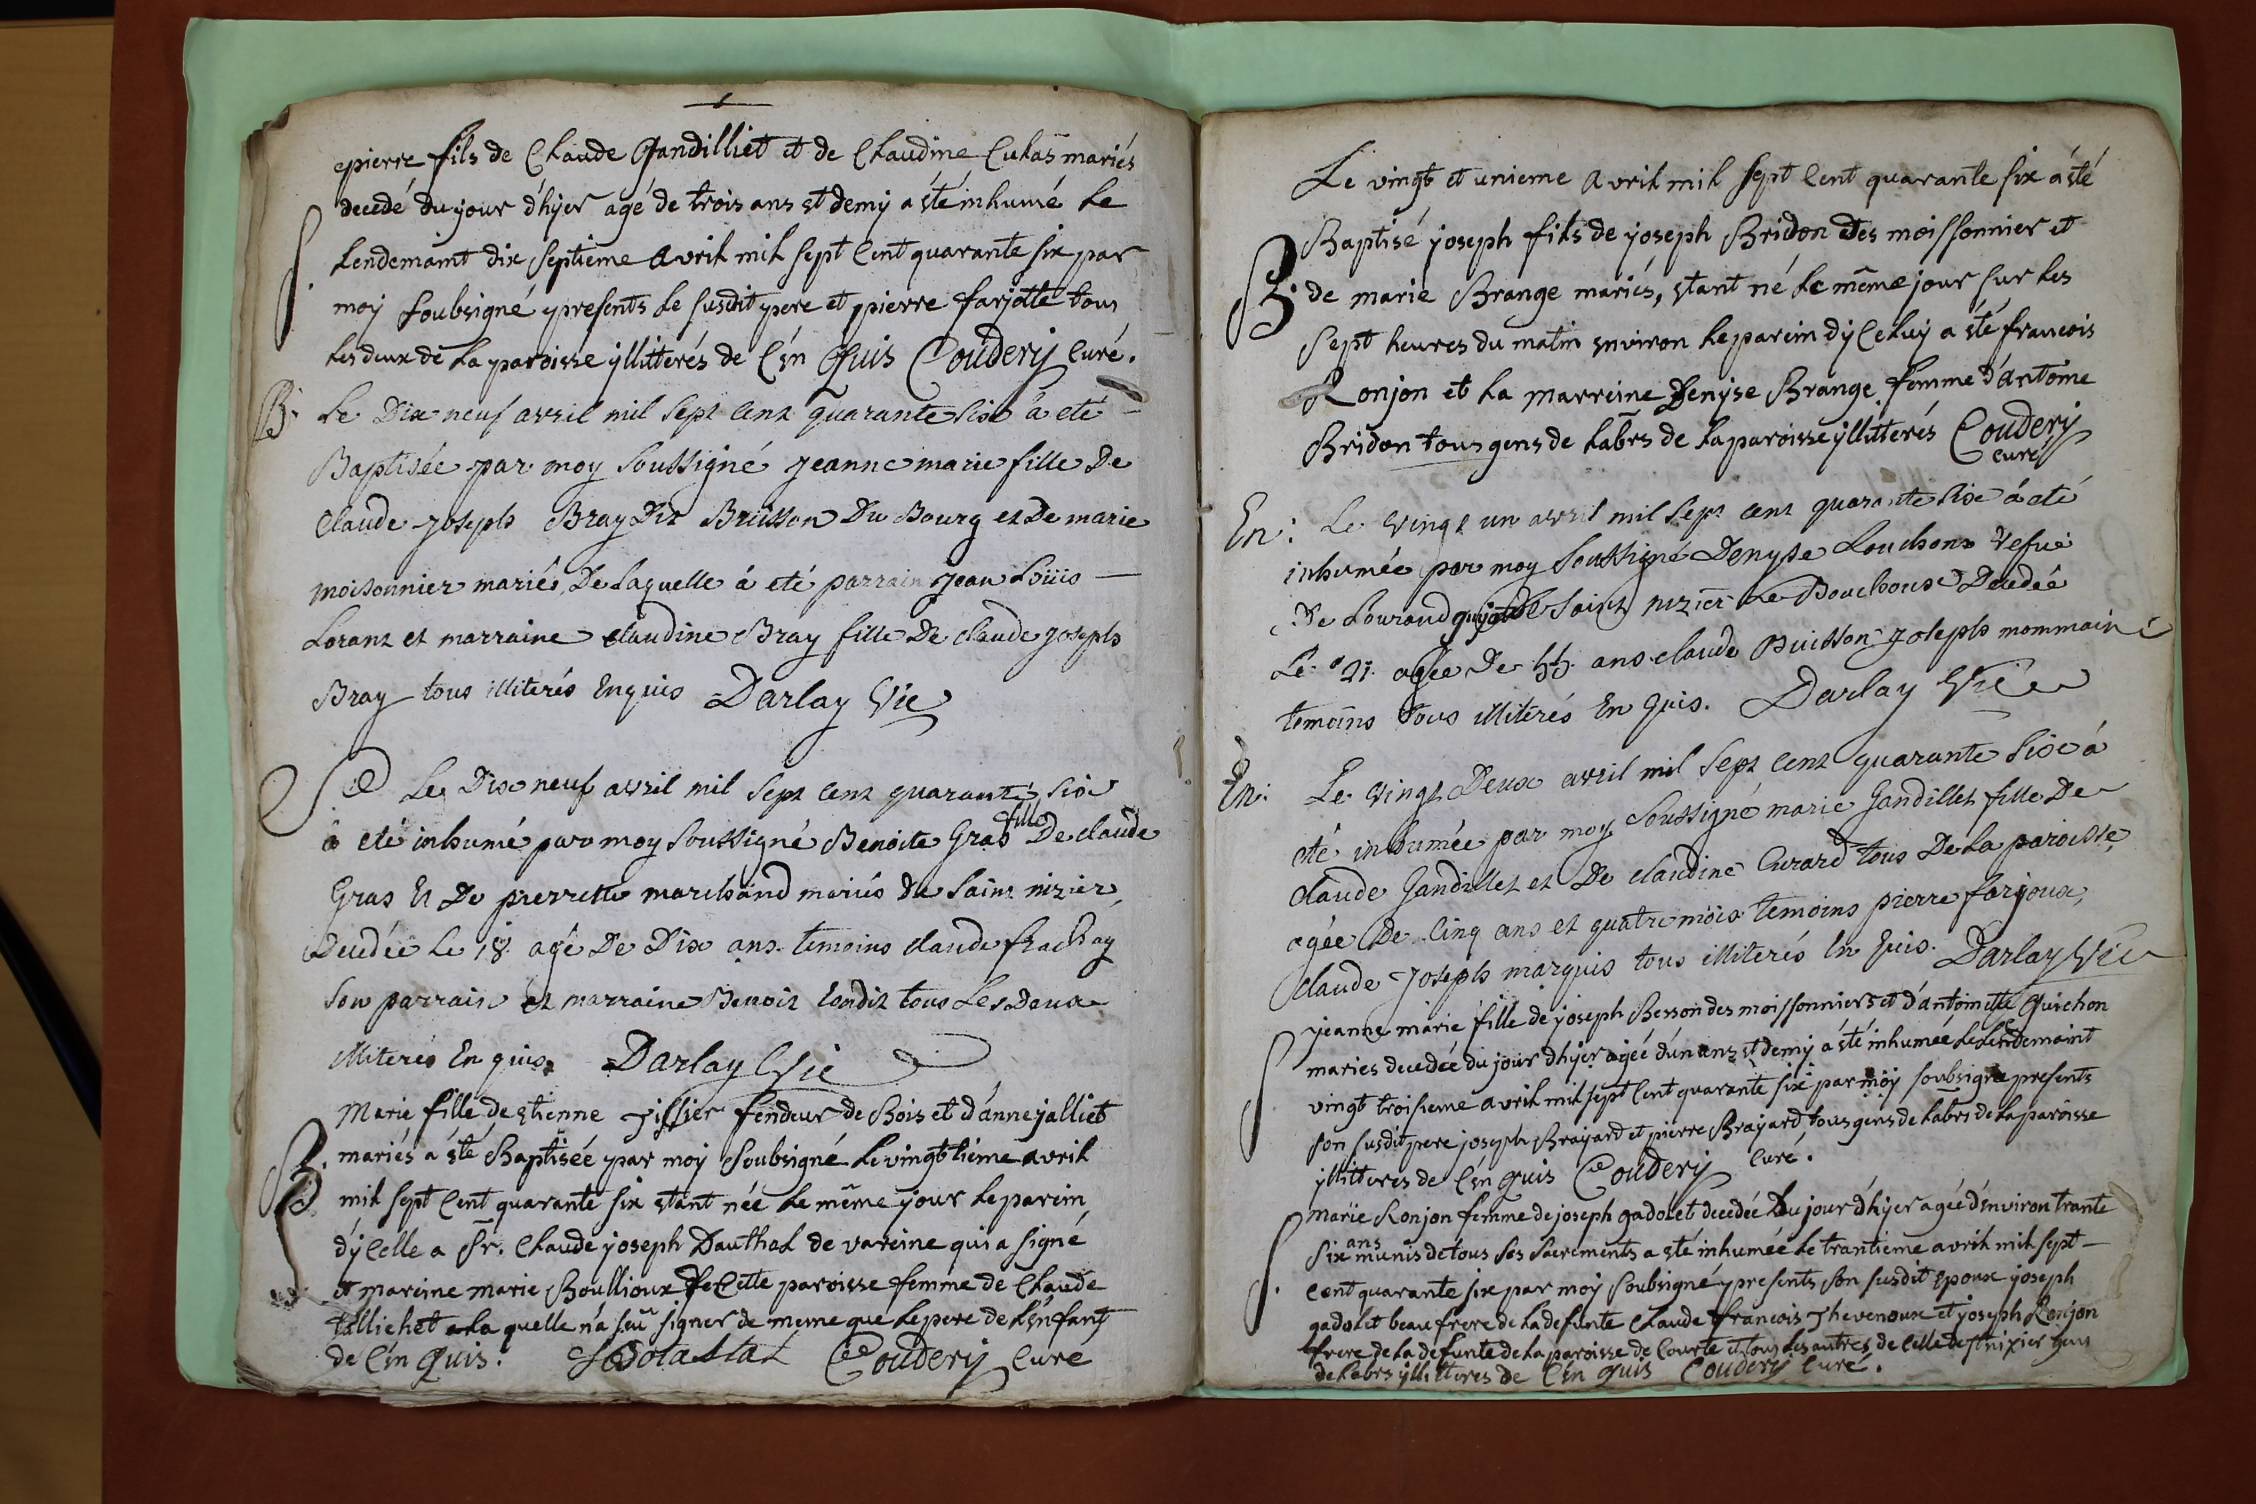 pierre fils de Claude Gandilliet et de Claudine Cuhas mariés
decedé du jour d'hÿer agé de trois ans et demÿ a été inhumé le
S. lendemaint dix septieme avril mil sept cent quarante six par
moÿ soubsigné presents le susdit pere et pierre farjotte tous
les deux de la paroisse ÿllitterés de C'en Quis Couderÿ Curé.
B. Le Dix neuf avril mil sept cent quarante six á eté
Baptisée par moy soussigné jeanne marie fille De
claude joseph Bray Dit Buisson Du Bourg et De marie
moisonnier mariés, De laquelle á eté parrain jean Loüis
Lorant et marraine claudine Bray fille De claude joseph
Bray tous illiterés Enquis Darlay Vic
Se Le Dix neuf avril mil sept cent quarante six
á eté inhumé par moy soussigné Benoite Gras fille De claude
Gras Et De pierrette marchand mariés De saint nizier,
Decedée Le 18. agé De Dix ans. temoins claude
son parrain et marraine Benoit tous Les Deux
illiterés Enquis. Darlay Vic
Marie fille de etienne Tissier fendeur de Bois et d'anne jalliet
mariés a été Baptisée par moÿ Soubsigné le vingtieme avril
B. mil sept Cent quarante six etant née le même jour le parein
d'ÿcelle a Sr. Claude joseph Dauthal de vareine qui a signé
et mareine marie Boullioux de Cette paroisse femme de Claude
tallichet a la quelle n'á seu signer de meme que le pere de L'enfant
de C'en Quis. Couderÿ Curé
Le vingt et unieme avril mil sept Cent quarante six a été
Baptisé joseph fils de joseph Bridon des moissonnier et
B. de marie Brange mariés, etant né le même jour sur les
sept heures du matin environ le parein d'ÿ Celuÿ a été francois
Ronjon et la marreine Denÿse Brange femme d'antoine
Bridon tous gens de labrs de la paroisse ÿllitterés Couderÿ
curé
En: Le vingt un avril mil sept cent quarante six á eté
inhumée par moy soussigné Denyse Louchon Vefue
De Lourand saint nizier Le Bouchoux Decedée
Le 21. agée De 55. ans claude Buisson joseph mommain
temoins tous illiterés En Quis. Darlay Vic
En: Le vingt Deux avril mil sept cent quarante six á
eté inhumée par moy soussigné marie Gandillet fille De
claude Gandillet et De claudine Curard tous De La paroisse,
agée De Cinq ans et quatre mois temoins pierre farjoux,
claude joseph marquis tous illiterés En Quis. Darlay Vic
jeanne marie fille de joseph Besson des moissonniers et d'antoinette Guichon
maries decedée du jour d'hÿer agée d'un ans et demÿ a été inhumée le lendemaint
S vingt troisieme avril mil sept Cent quarante six par moÿ soubsigné presents
son susdit pere joseph Braÿard et pierre Braÿard tous gens de labrs de la paroisse
ÿllitteres de C'en quis Couderÿ Curé.
Marie Ronjon femme de joseph gadolet decedée du jour d'hÿer agée d'environ trante
six ans munis de tous ses sacrements a été inhumée le trantieme avril mil sept
S. cent quarante six par moÿ soubsigné presents son susdit epoux joseph
gadolet beau frere de la defunte Claude francois Thevenoux et joseph Ronjon
frere de la defunte de la paroisse de Courte et tous les autres de Celle de st nixier gens
de labrs ÿllitteres de C'en quis Couderÿ Curé.